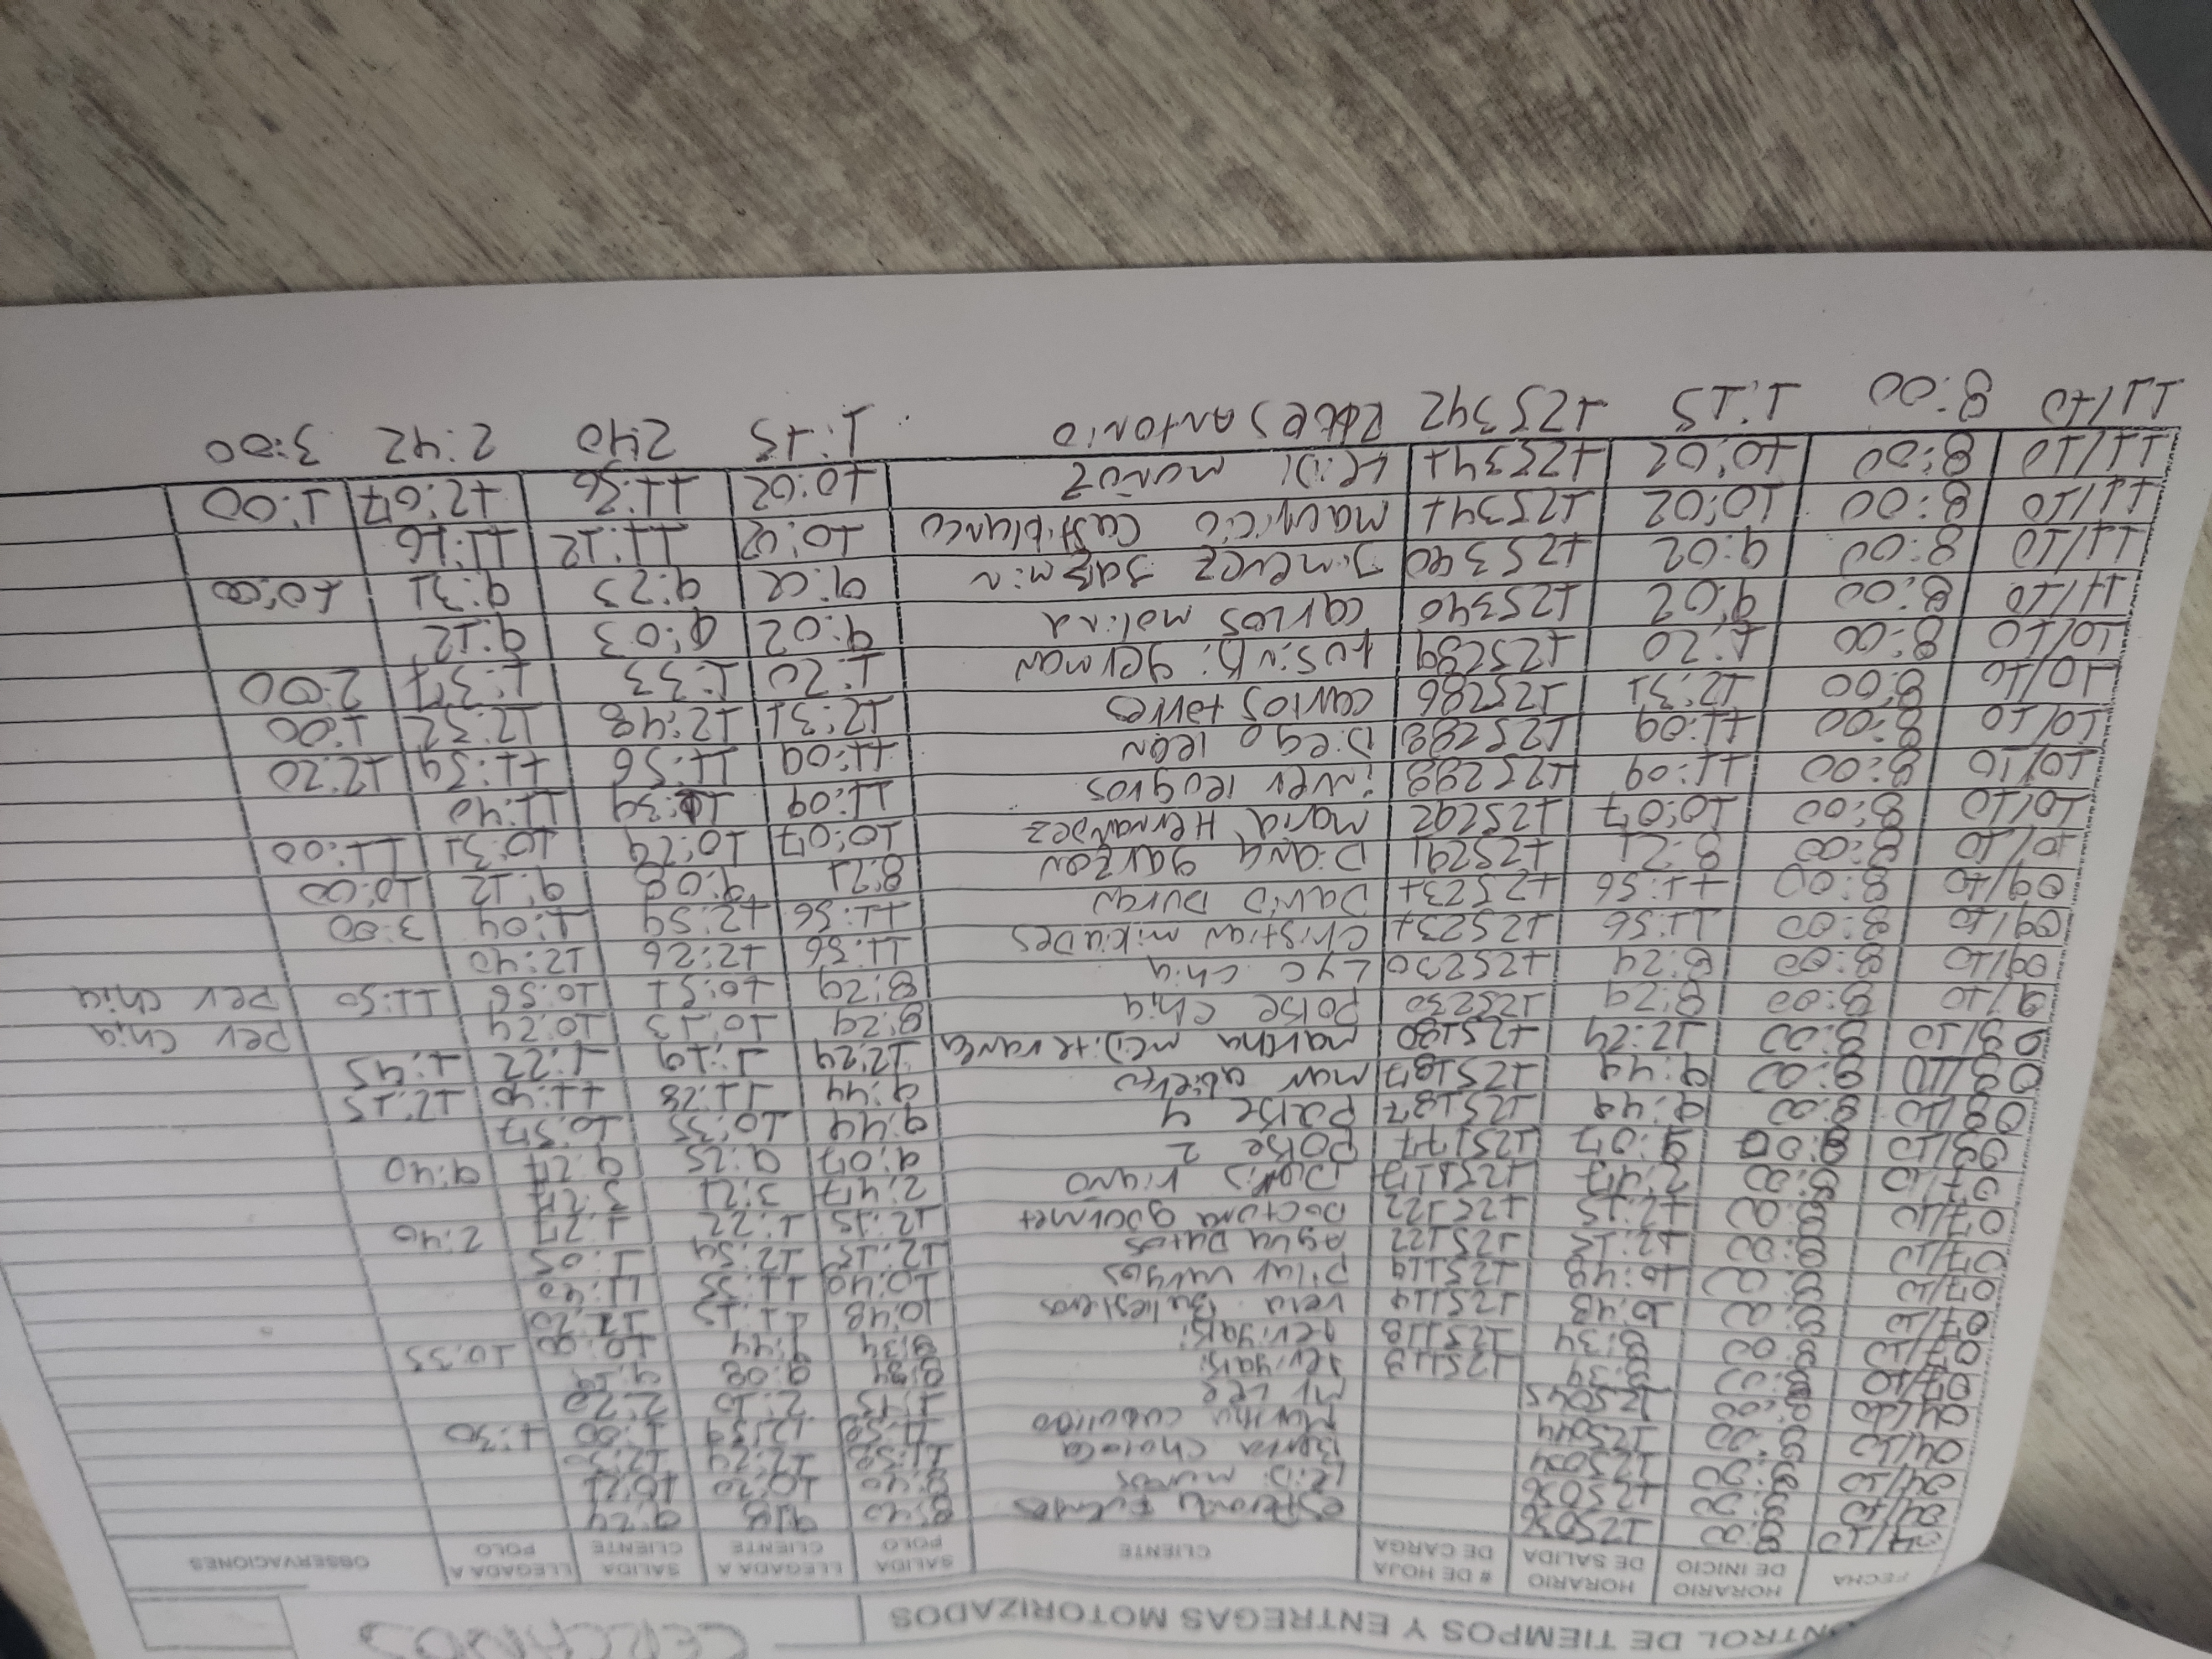 CONTROL DE TIEMPOS Y ENTREGAS MOTORIZADOS CERCANOS
FECHA HORARIO DE INICIO HORARIO DE SALIDA # DE HOJA DE CARGA CLIENTE SALIDA POLO LLEGADA A CLIENTE SALIDA CLIENTE LLEGADA A POLO OBSERVACIONES
04/10 8:00 125036 8:40 9:18 9:24
04/10 8:00 125036 8:40 10:20 10:21
04/10 8:00 125034 Berta 11:52 12:24 12:30
04/10 8:00 125044 11:52 12:59 1:00 1:30
04/10 8:00 125045 Mr Lee 1:15 2:10 2:20
07/10 8:00 8:34 125118 8:34 9:08 9:19
07/10 8:00 8:34 125118 8:34 9:44 10:00 10:35
07/10 8:00 10:48 125119 Vera Ballesteros 10:48 11:15 11:20
07/10 8:00 10:48 125119 Pilar vargas 10:40 11:35 11:40
07/10 8:00 12:15 125122 Agua Datos 12:15 12:54 1:05
07/10 8:00 12:15 125122 Doctora gourmet 12:15 1:22 1:27 2:40
07/10 8:00 2:47 125117 Doris riaño 2:47 3:21 3:27
08/10 8:00 9:07 125177 Polse 2 9:07 9:25 9:27 9:40
08/10 8:00 9:49 125187 Polse 4 9:44 10:35 10:57
08/10 8:00 9:49 125187 mar abierto 9:44 11:28 11:40 12:15
08/10 8:00 12:24 125180 marcha mediterranea 12:24 1:19 1:22 1:45
9/10 8:00 8:29 125230 Polse chia 8:29 10:13 10:24 per chia
09/10 8:00 8:29 125230 LyC chia 8:29 10:51 10:56 11:50 per chia
09/10 8:00 11:56 125231 Christian milciades 11:56 12:26 12:40
09/10 8:00 11:56 125231 David Duran 11:56 12:59 1:04 3:00
10/10 8:00 8:21 125291 Diana garzon 8:21 9:08 9:12 10:00
10/10 8:00 10:07 125292 maria Hernandez 10:07 10:29 10:31 11:00
10/10 8:00 11:09 125288 inver leogros 11:09 11:39 11:40
10/10 8:00 11:09 125288 Diego leon 11:09 11:56 11:59 12:20
10/10 8:00 12:31 125286 carlos torres 12:31 12:48 12:52 1:00
10/10 8:00 1:20 125289 german 1:20 1:33 1:37 2:00
11/10 8:00 9:02 125340 carlos molina 9:02 9:03 9:12
11/10 8:00 9:02 125340 Jimenez Jazmin 9:02 9:23 9:31 10:00
11/10 8:00 10:02 125341 mauricio castiblanco 10:02 11:12 11:16
11/10 8:00 10:02 125341 Leidi muñoz 10:02 11:56 12:07 1:00
11/10 8:00 1:15 125342 ANTONIO 1:15 2:40 2:42 3:00